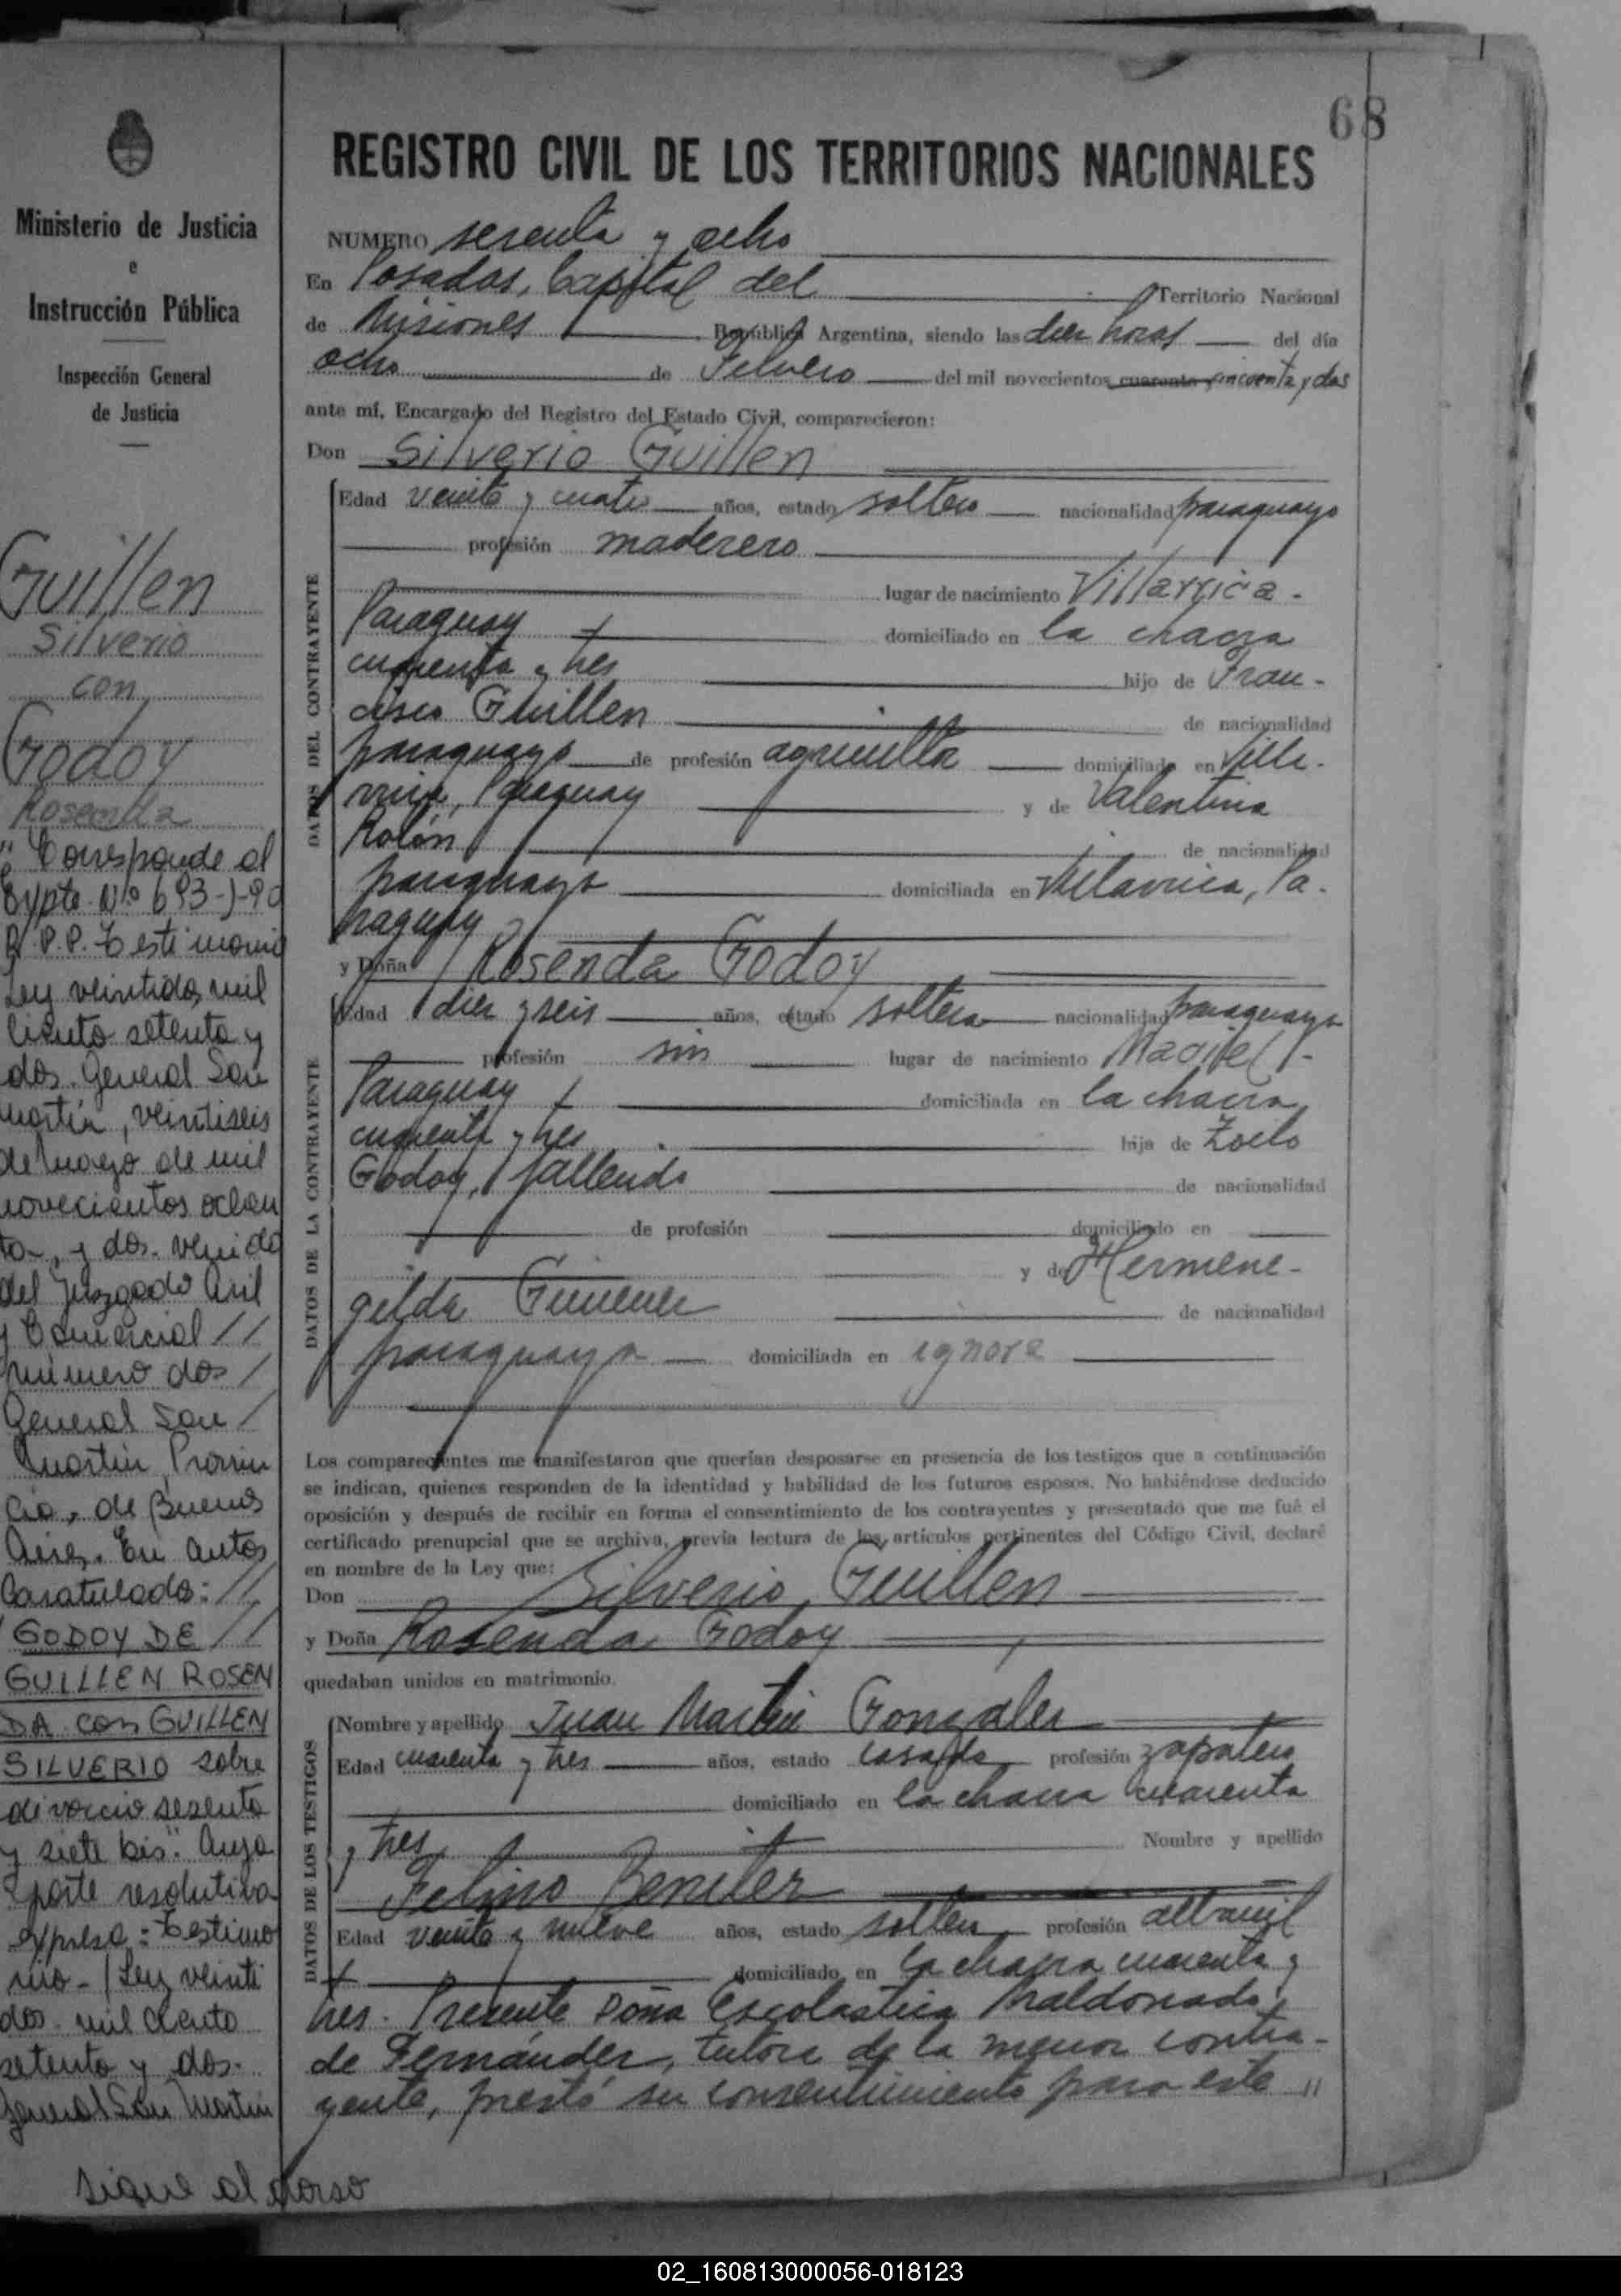 68
REGISTRO CIVIL DE LOS TERRITORIOS NACIONALES
Ministerio de Justicia
e
Instrucción Pública
Inspección General
de Justicia
NUMERO sesenta y ocho
En Posadas, Capital del Territorio Nacional
de Misiones República Argentina, siendo las diez horas del día
ocho de Febrero del mil novecientos cuarenta y cincuenta y dos
ante mí, Encargado del Registro del Estado Civil, comparecieron:
Don Silverio Guillen
DATOS DEL CONTRAYENTE
Edad veinte y cuatro años, estado soltero nacionalidad paraguayo
profesión maderero
lugar de nacimiento Villarrica -
Paraguay domiciliado en la chacra
cuarenta y tres hijo de Fran-
cisco Guillen de nacionalidad
paraguayo de profesión agricultor domiciliado en Villa-
rrica, Paraguay y de Valentina
Rolón de nacionalidad
paraguaya domiciliada en Villarrica, Pa-
raguay
y Doña Rosenda Godoy
DATOS DE LA CONTRAYENTE
Edad diez y seis años, estado soltera nacionalidad paraguaya
profesión sin lugar de nacimiento Maciel -
Paraguay domiciliada en la chacra
cuarenta y tres hija de Zoilo
Godoy, fallecido de nacionalidad
de profesión domiciliado en
y de Hermene-
gilda Gimenez de nacionalidad
paraguaya domiciliada en ignora
Los comparecientes me manifestaron que querían desposarse en presencia de los testigos que a continuación
se indican, quienes responden de la identidad y habilidad de los futuros esposos. No habiéndose deducido
oposición y después de recibir en forma el consentimiento de los contrayentes y presentado que me fué el
certificado prenupcial que se archiva, previa lectura de los artículos pertinentes del Código Civil, declaré
en nombre de la Ley que:
Don Silverio Guillen
y Doña Rosenda Godoy
quedaban unidos en matrimonio.
DATOS DE LOS TESTIGOS
Nombre y apellido Juan Martin Gonzales
Edad cuarenta y tres años, estado casado profesión zapatero
domiciliado en la chacra cuarenta
y tres Nombre y apellido
Benitez
Edad veinte y nueve años, estado soltero profesión albañil
domiciliado en la chacra cuarenta y
tres. Presente Doña Escolastica Maldonado
de Fernández, tutora de la menor contra-
yente, prestó su consentimiento para este //
Guillen
Silverio
con
Godoy
Rosenda
"Corresponde al
Expte. Nº 693-J-90
R.P.P. Testimonio
Ley veintidos mil
ciento setenta y
dos. General San
Martín, veintiseis
de mayo de mil
novecientos ochen
ta y dos. venido
del Juzgado Civil
y Comercial //
número dos /
General San /
Martín Provin
cia, de Buenos
Aires. En autos
Caratulado: //
GODOY DE //
GUILLEN ROSEN
DA con GUILLEN
SILVERIO sobre
divorcio sesenta
y siete bis". Cuya
parte resolutiva
expresa: Testimo
nio - / Ley veinti
dos mil ciento
setenta y dos.
General San Martín
sigue al dorso
02_160813000056-018123